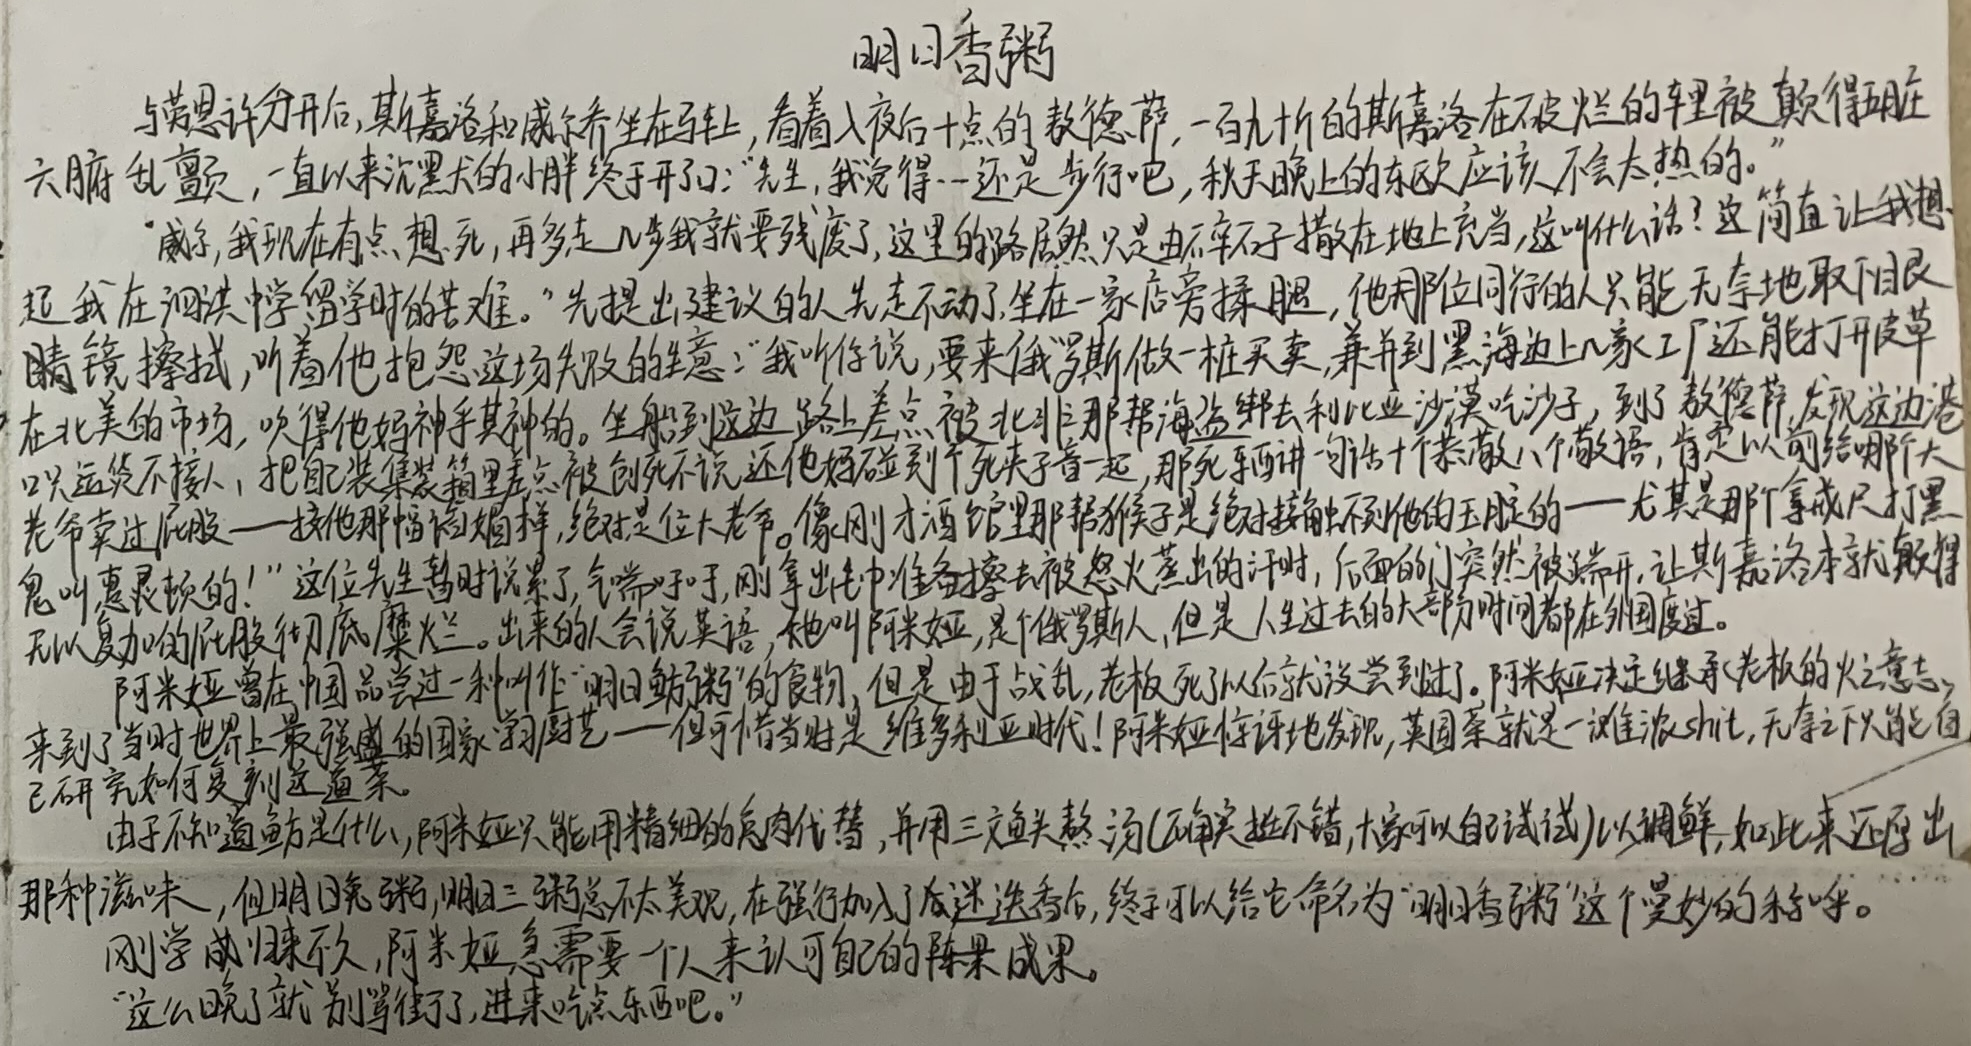 明日香粥
与劳恩许分开后,斯嘉洛和威尔乔坐在马车上,看着入夜后十点的敖德萨,一百九十斤的斯嘉洛在破烂的车里被颠得五脏
六腑乱颤,一直以来沉默的小胖终于开了口:“先生,我觉得…还是步行吧,秋天晚上的东欧应该不会太热的。”
“威尔,我现在有点想死,再多走几步我就要残废了,这里的路居然只是由碎石子撒在地上充当,这叫什么话?这简直让我想
起我在泗洪中学留学时的苦难。”先提出建议的人先走不动了,坐在一家店旁揉腿,他那位同行的人只能无奈地取下眼
睛镜擦拭,听着他抱怨这场失败的生意:“我听你说,要来俄罗斯做一桩买卖,兼并到黑海边上几家工厂还能打开皮草
在北美的市场,吹得他妈神乎其神的。坐船到这边路上差点被北非那帮海盗绑去利比亚沙漠吃沙子,到了敖德萨,发现这边港
口只运货不接人,把自己装集装箱里差点被创死不说还他妈碰到个死夹子音一起,那死东西讲一句话十个恭敬八个敬语,肯定以前给哪个大
老爷卖过屁股——按他那幅谄媚样,绝对是位大老爷。像刚才酒馆里那帮猴子是绝对接触不到他的玉腚的——尤其是那个拿戒尺打黑
鬼叫惠灵顿的!”这位先生暂时说累了,气喘吁吁,刚拿出毛巾准备擦去被怒火蒸出的汗时,后面的门突然被踹开,让斯嘉洛本就颠得
无以复加的屁股彻底糜烂。出来的人会说英语,她叫阿米娅,是个俄罗斯人,但是人生过去的大部分时间都在外国度过。
阿米娅曾在中国品尝过一种叫作“明日鲂粥”的食物,但是由于战乱,老板死了以后就没尝到过了。阿米娅决定继承老板的火之意志,
来到了当时世界上最强盛的国家学习厨艺——但可惜当时是维多利亚时代!阿米娅惊讶地发现,英国菜就是一滩浓shit,无奈之下只能自
己研究如何复刻这道菜。
由于不知道鲂是什么,阿米娅只能用精细的兔肉代替,并用三文鱼头熬汤(正确实挺不错,大家可以自己试试)以调鲜,如此来还原出
那种滋味,但明日兔粥,明日三粥总不太美观,在强行加入了迷迭香后,终于可以给它命名为“明日香粥”这个曼妙的称呼。
刚学成归来不久,阿米娅急需要一个人来认可自己的成果。
“这么晚了就别骂街了,进来吃点东西吧。”